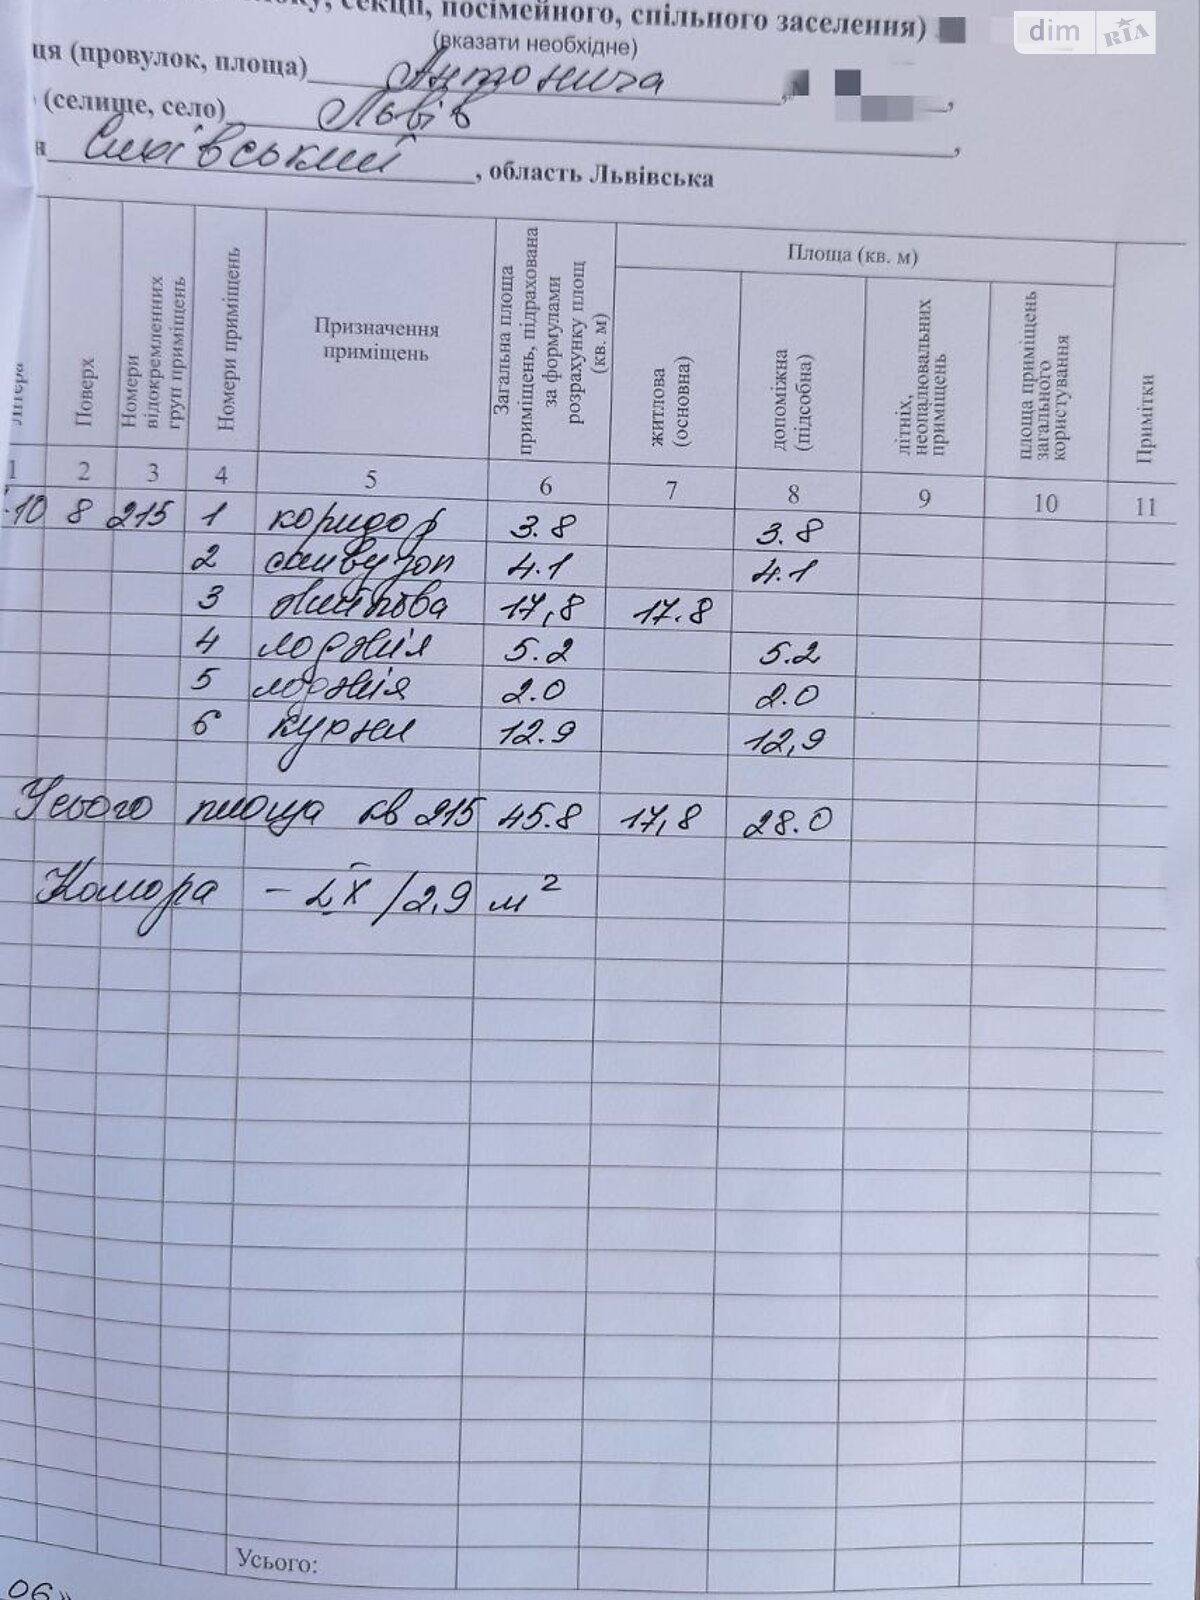 секції, посімейного, спільного заселення)
dim RIA
(вказати необхідне)
ця (провулок, площа) Антонича ,
(селище, село) Львів ,
Сихівський , область Львівська
Літера
Поверх
Номери відокремленних груп приміщень
Номери приміщень
Призначення приміщень
Загальна площа приміщень, підрахована за формулами розрахунку площ (кв. м)
Площа (кв. м)
житлова (основна)
допоміжна (підсобна)
літніх, неопалювальних приміщень
площа приміщень загального користування
Примітки
1 2 3 4 5 6 7 8 9 10 11
-10 8 215 1 коридор 3.8 3.8
2 санвузол 4.1 4.1
3 житлова 17,8 17.8
4 лоджія 5.2 5.2
5 лоджія 2.0 2.0
6 кухня 12.9 12,9
Усього площа кв 215 45.8 17,8 28.0
Комора - LX /2,9 м²
Усього:
06»